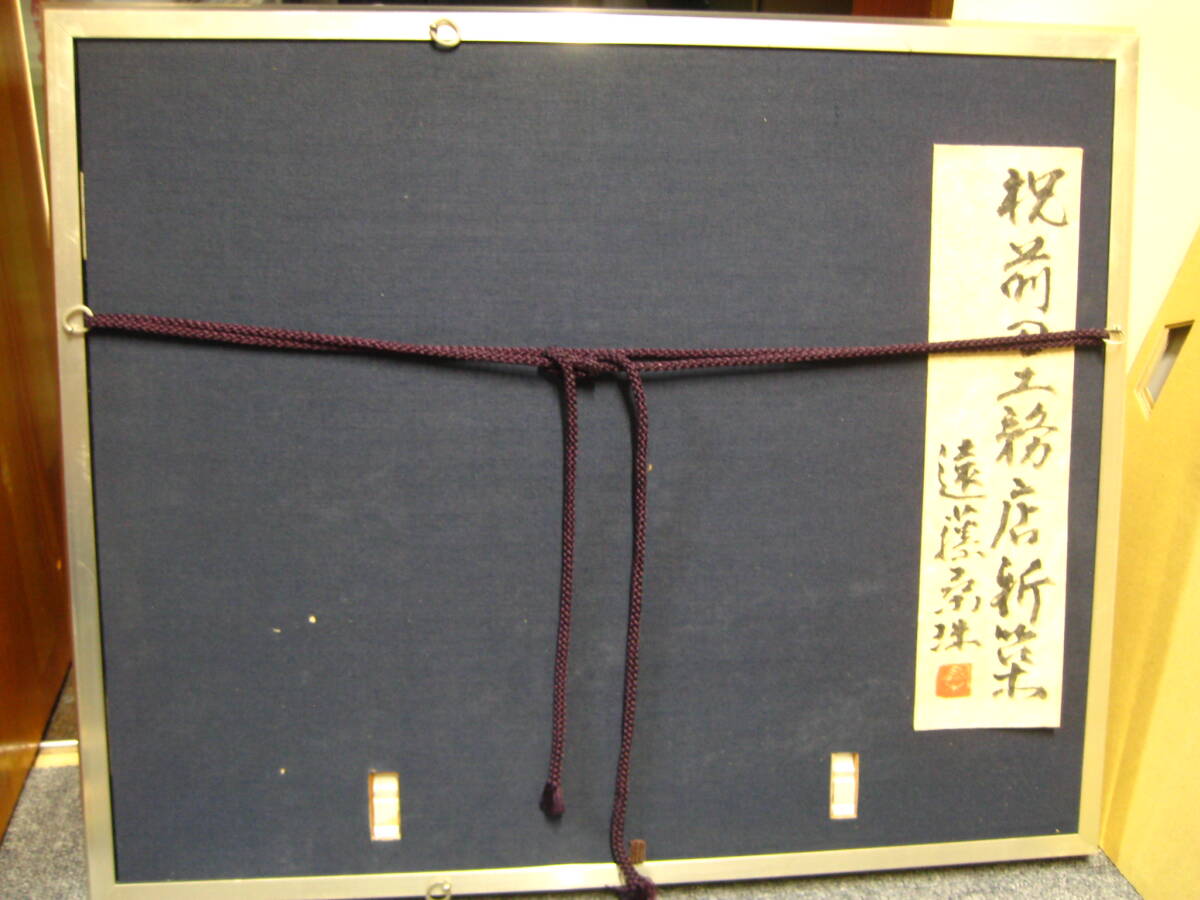 祝前田工務店新築
遠藤桑珠